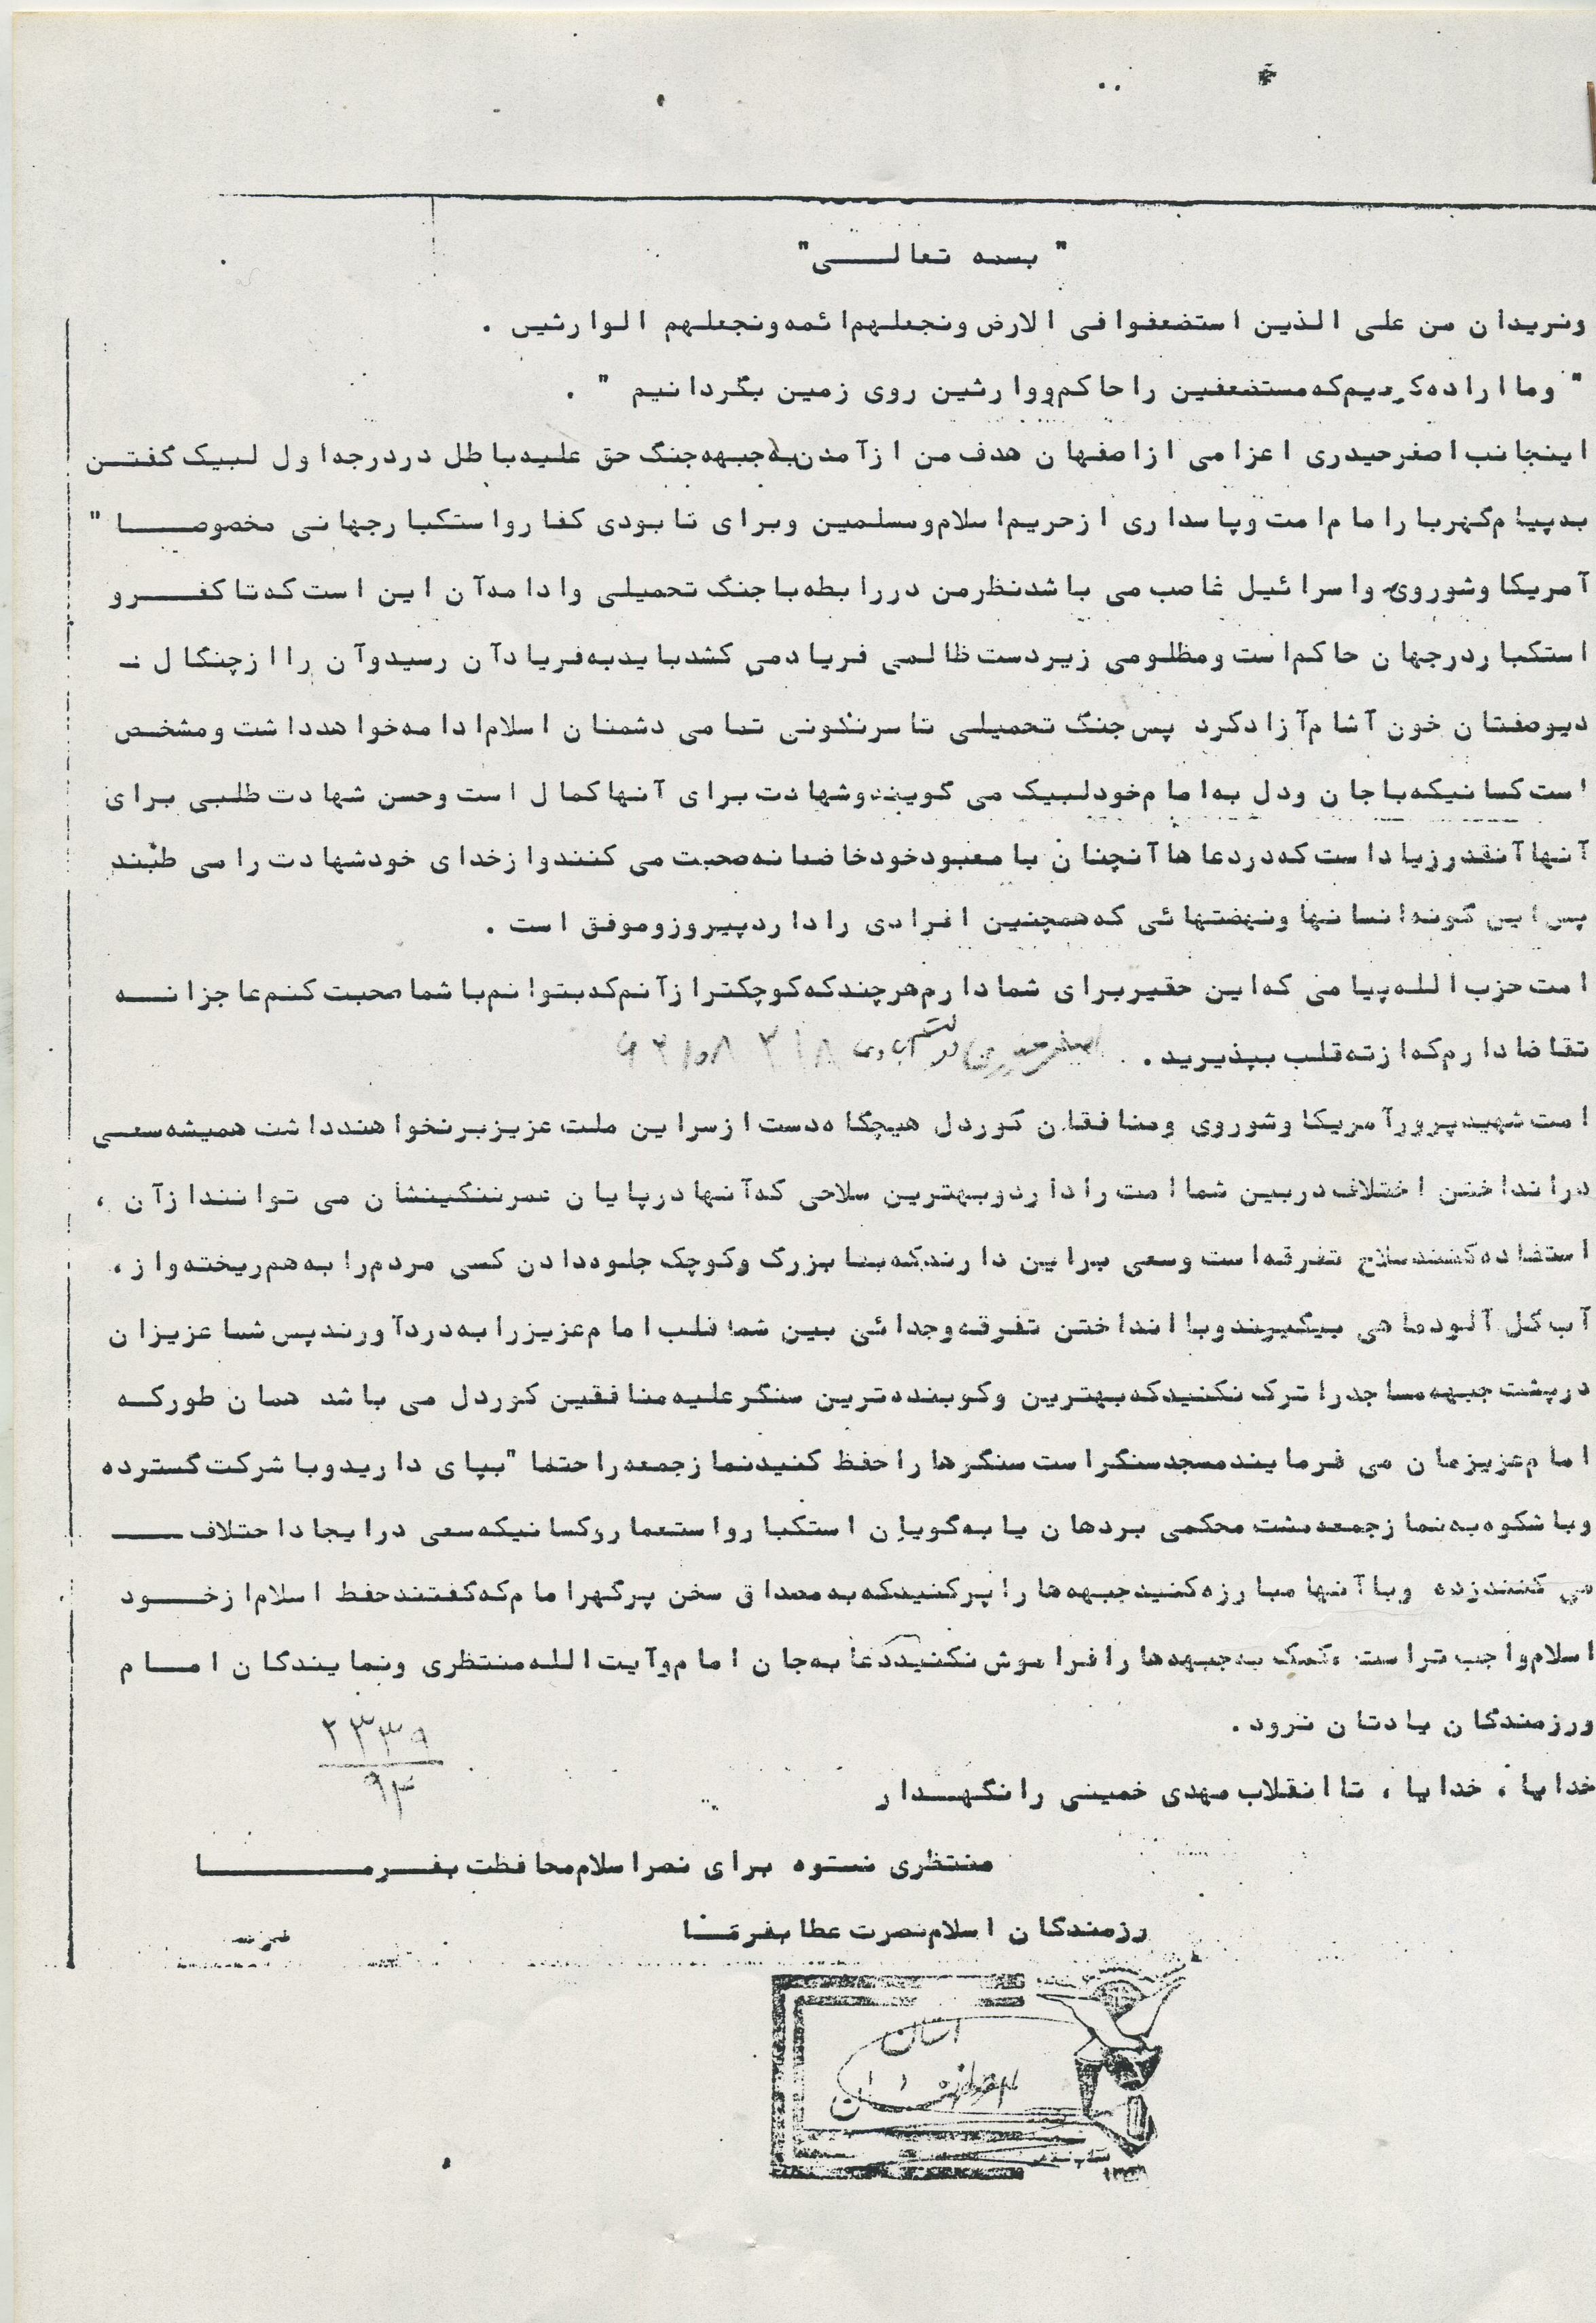 " بسمه تعالــی"
ونریدان من علی الذین استضعفوا فی الارض ونجعلهم ائمه ونجعلهم الوارثین .
" وما اراده کردیم که مستضعفین را حاکم ووارثین روی زمین بگردانیم " .
اینجانب اصغرحیدری اعزامی ازاصفهان هدف من ازآمدن به جبهه جنگ حق علیه باطل دردرجه اول لبیک گفتــن
به پیام گهربار امام امت وپاسداری ازحریم اسلام ومسلمین وبرای نابودی کفارواستکبارجهانی مخصوصــا "
آمریکا وشوروی واسرائیل غاصب می باشدنظرمن دررابطه باجنگ تحمیلی وادامه آن این است که تاکفــرو
استکباردرجهان حاکم است ومظلومی زیردست ظالمی فریادمی کشدبایدبه فریادآن رسیدوآن راازچنگال ــ
دیوصفتان خون آشام آزادکرد پس جنگ تحمیلی تاسرنگونی تمامی دشمنان اسلام ادامه خواهدداشت ومشخص
است کسانیکه باجان ودل به امام خودلبیک می گویندوشهادت برای آنهاکمال است وحسن شهادت طلبی برای
آنهاآنقدرزیاداست که دردعاهاآنچنان با معبودخودخاضعانه صحبت می کنندوازخدای خودشهادت را می طلبند
پس این گونه انسانهاونهضتهائی که همچنین افرادی راداردپیروزوموفق است .
امت حزب الله پیامی که این حقیربرای شمادارم هرچندکه کوچکترازآنم که بتوانم باشماصحبت کنم عاجزانــه
تقاضادارم که ازته قلب بپذیرید . اصغرحیدری
امت شهیدپرورآمریکا وشوروی ومنافقان کوردل هیچگاه دست ازسراین ملت عزیزبرنخواهندداشت همیشه سعــی
درانداختن اختلاف دربین شماامت راداردوبهترین سلاحی که آنهادرپایان عمرننگینشان می توانندازآن ،
استفاده کنندسلاح تفرقه است وسعی براین دارندکه بابزرگ وکوچک جلوه دادن کسی مردم را به هم ریخته واز ،
آب گل آلودماهی بیگیرندوباانداختن تفرقه وجدائی بین شما قلب امام عزیزرابه دردآورندپس شماعزیزان
درپشت جبهه مساجدرا ترک نکنیدکه بهترین وکوبنده ترین سنگرعلیه منافقین کوردل می باشد همان طورکــه
امام عزیزمان می فرمایندمسجدسنگراست سنگرهاراحفظ کنیدنمازجمعه راحتما "بپای داریدوباشرکت گسترده
وباشکوه به نمازجمعه مشت محکمی بردهان یابه گویان استکبارواستعماروکسانیکه سعی درایجاداختلاف ــ
می کنندزده وباآنهامبارزه کنیدجبهه هاراپرکنیدکه به مصداق سخن پرگهرامام که گفتندحفظ اسلام ازخــود
اسلام واجب تراست ،کمک به جبهه هارافراموش نکنیددعابه جان امام وآیت الله منتظری ونمایندگان امــام
ورزمندگان یادتان نرود .
۲۳۳۹
۹۳
خدایا ، خدایا ، تاانقلاب مهدی خمینی رانگهــدار
منتظری نستوه برای نصراسلام محافظت بفــرمــا
رزمندگان اسلام نصرت عطابفرمــا
استان
اصفهان